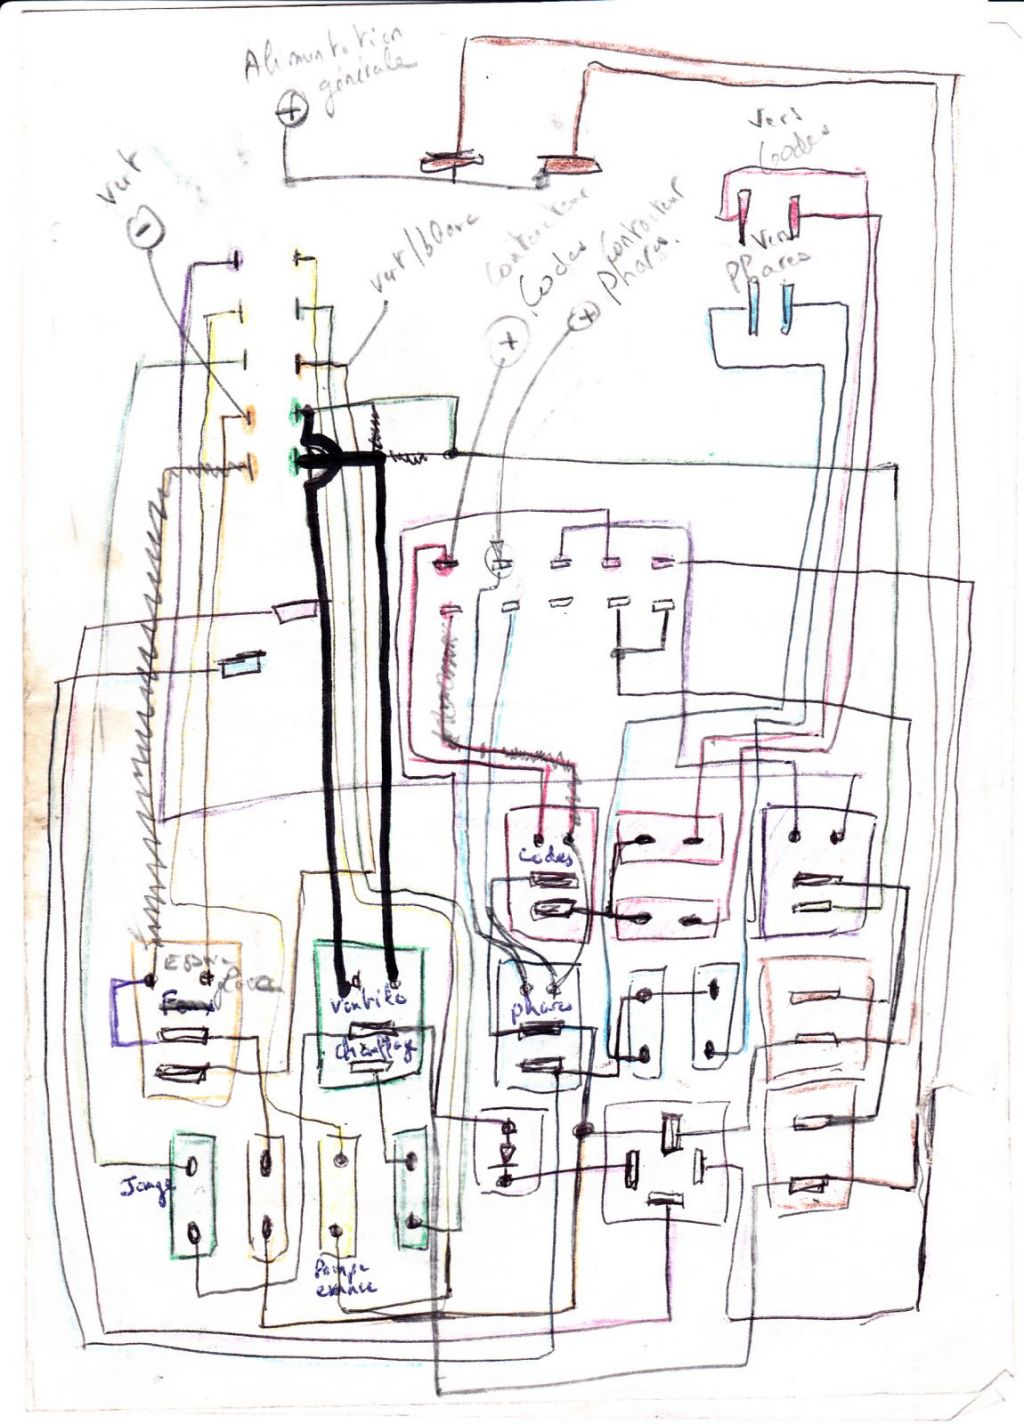 Alimentation
générale
+
Vers
Codes
vert
-
vert/blanc
Contacteur
Codes
Contacteur
Phares.
+
+
Vers
Phares
Codes
Ventilo
Chauffage
phares
Jauge
Pompe
essence